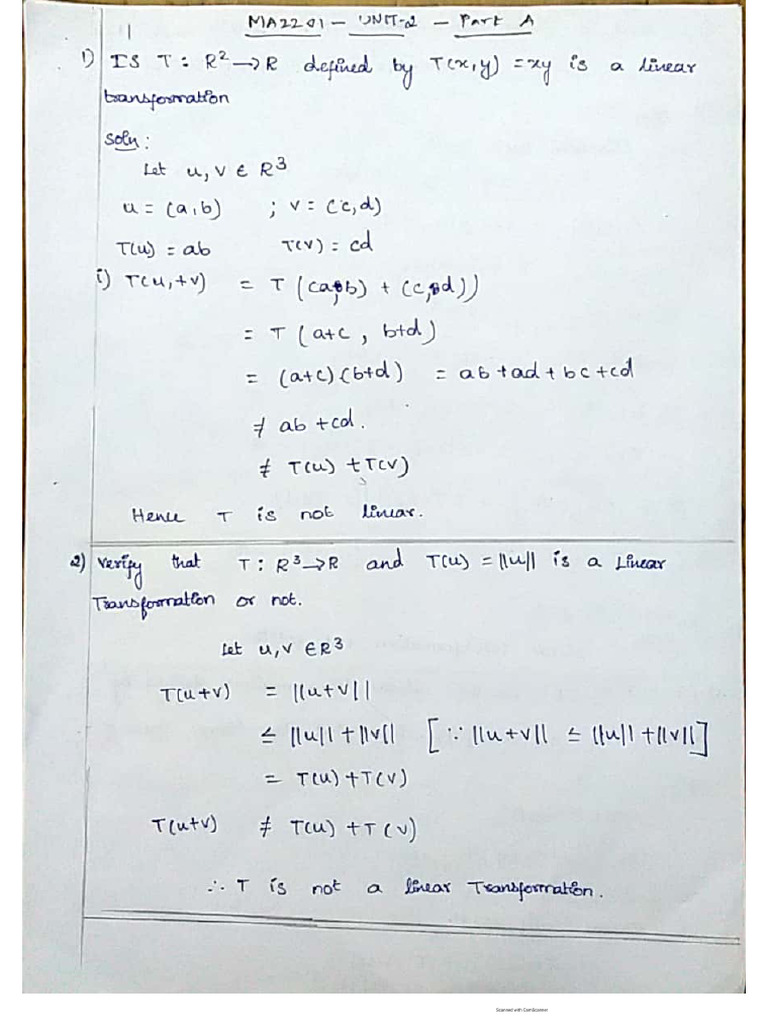 MA2201 - UNIT-2 - Part A
1) IS T : R² → R defined by T(x,y) = xy is a linear
transformation
Soln :
Let u, v ∈ R³
u = (a, b) ; v = (c, d)
T(u) = ab T(v) = cd
i) T(u,+v) = T ((a,b) + (c,d))
= T (a+c , b+d)
= (a+c) (b+d) = ab + ad + bc + cd
≠ ab + cd.
≠ T(u) + T(v)
Hence T is not linear.
2) Verify that T : R³ → R and T(u) = ||u|| is a Linear
Transformation or not.
Let u, v ∈ R³
T(u+v) = ||u+v||
≤ ||u|| + ||v|| [∵ ||u+v|| ≤ ||u|| + ||v||]
= T(u) + T(v)
T(u+v) ≠ T(u) + T(v)
∴ T is not a linear Transformation.
Scanned with CamScanner